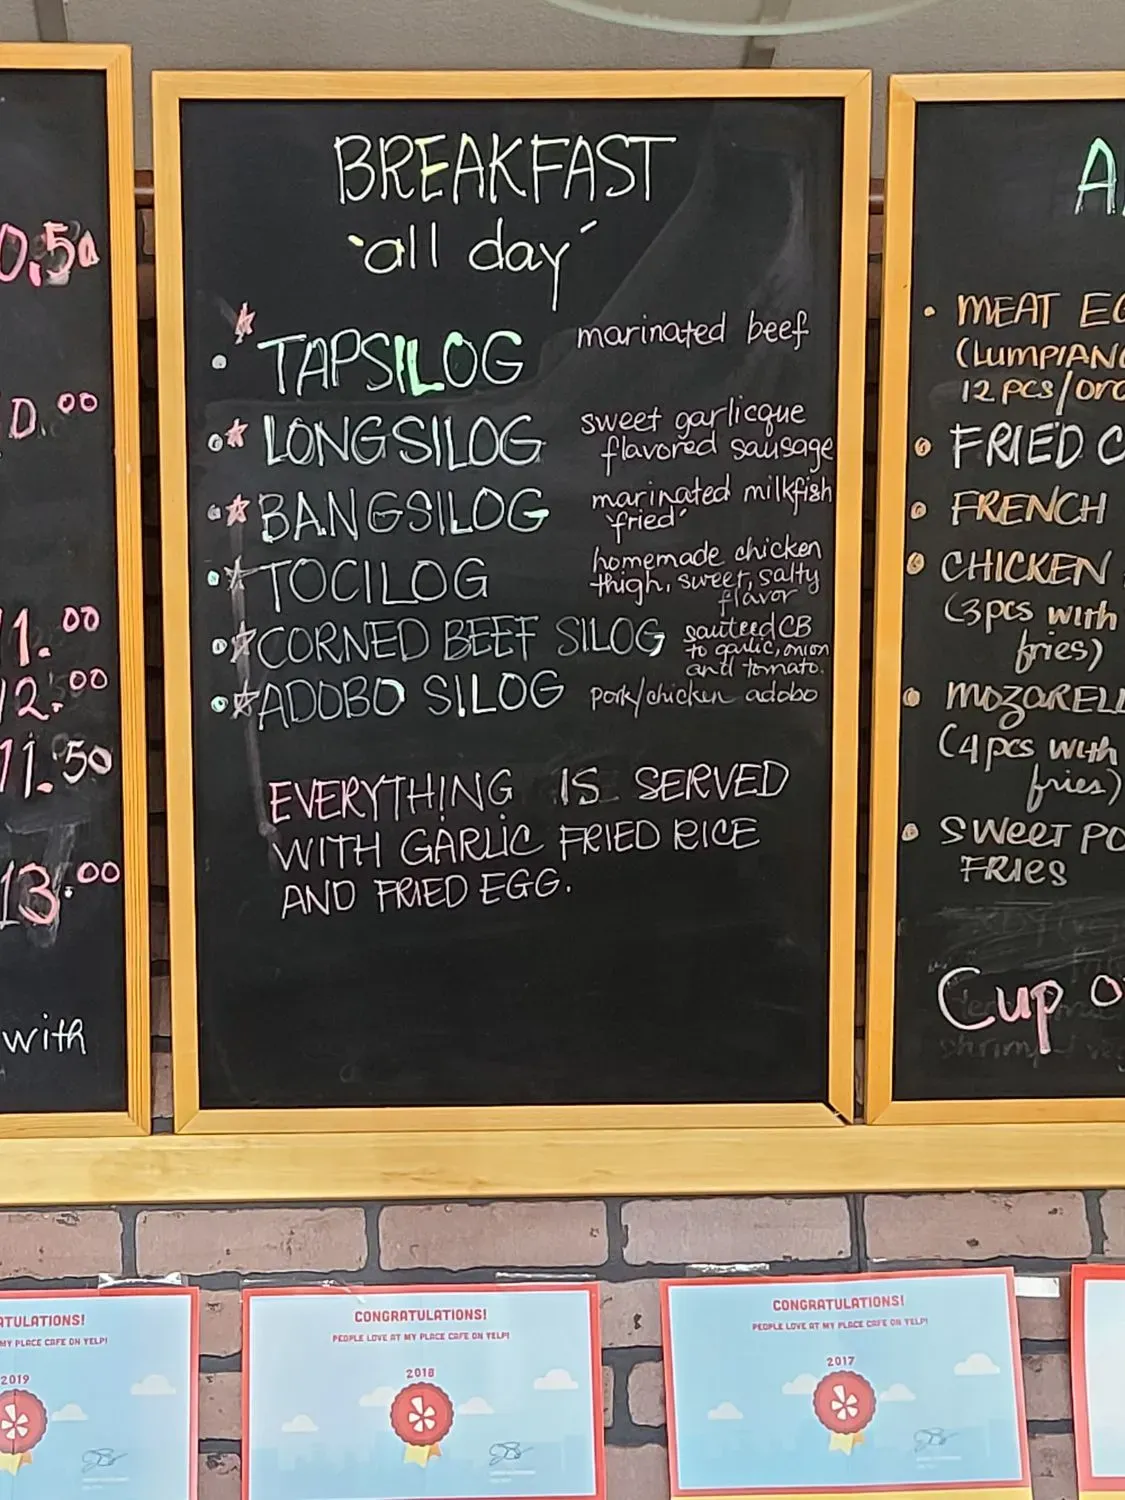 0.50
0.00
11.00
12.00
11.50
13.00
with
BREAKFAST
`all day´
TAPSILOG marinated beef
LONGSILOG sweet garlicque
flavored sausage
BANGSILOG marinated milkfish
`fried´
TOCILOG homemade chicken
thigh, sweet, salty
flavor
CORNED BEEF SILOG sauteed CB
to garlic, onion
and tomato.
ADOBO SILOG pork/chicken adobo
EVERYTHING IS SERVED
WITH GARLIC FRIED RICE
AND FRIED EGG.
A
MEAT EG
(LUMPIANG
12 pcs/ord
FRIED C
FRENCH
CHICKEN
(3pcs with
fries)
MOZARELL
(4pcs with
fries)
SWEET PO
FRIES
Cup o
ATULATIONS!
MY PLACE CAFE ON YELP!
2019
CONGRATULATIONS!
PEOPLE LOVE AT MY PLACE CAFE ON YELP!
2018
CONGRATULATIONS!
PEOPLE LOVE AT MY PLACE CAFE ON YELP!
2017